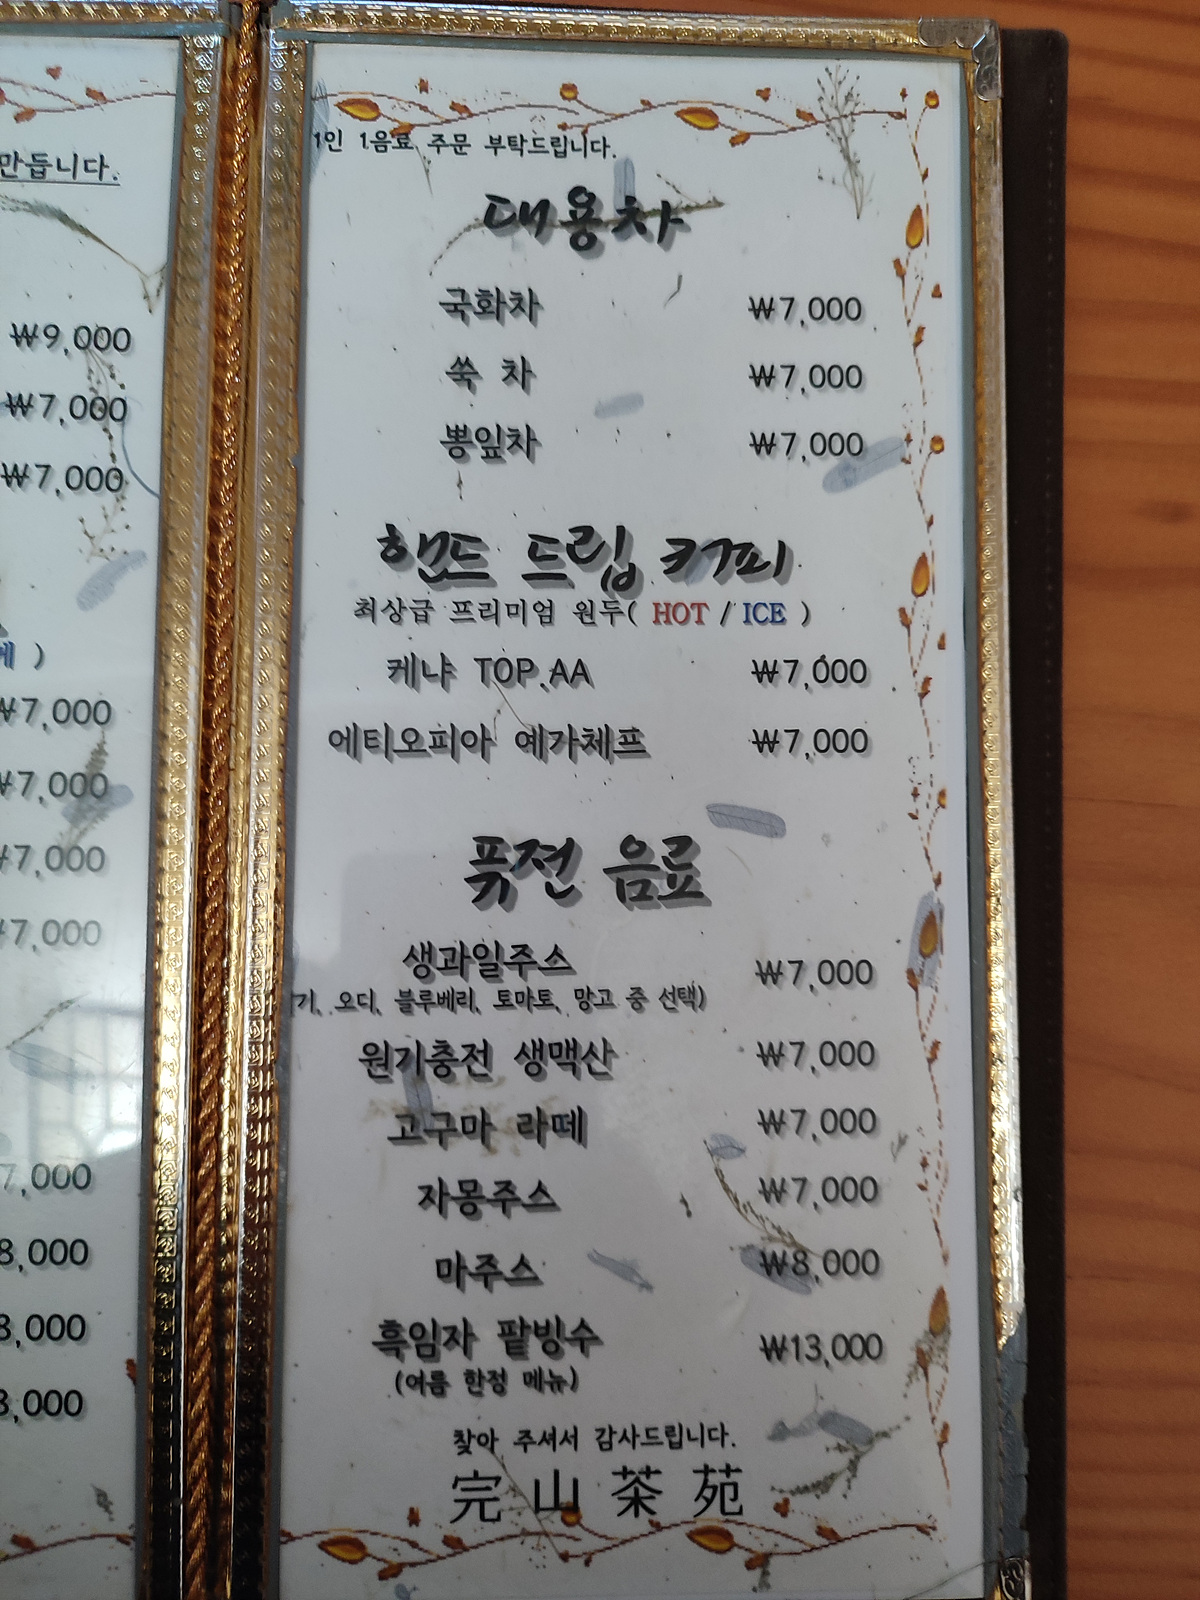 만듭니다.
₩9,000
₩7,000
₩7,000
)
₩7,000
₩7,000
₩7,000
7,000
7,000
8,000
8,000
8,000
1인 1음료 주문 부탁드립니다.
대용차
국화차 ₩7,000
쑥 차 ₩7,000
뽕잎차 ₩7,000
핸드 드립 커피
최상급 프리미엄 원두( HOT / ICE )
케냐 TOP.AA ₩7,000
에티오피아 예가체프 ₩7,000
퓩전 음료
생과일주스 ₩7,000
기, 오디, 블루베리, 토마토, 망고 중 선택)
원기충전 생맥산 ₩7,000
고구마 라떼 ₩7,000
자몽주스 ₩7,000
마주스 ₩8,000
흑임자 팥빙수 ₩13,000
(여름 한정 메뉴)
찾아 주셔서 감사드립니다.
完山茶苑